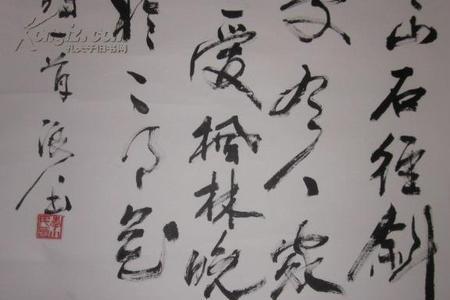 山石徑斜
有人家
愛楓林晚
於二月花
一首
Kongfz.com
孔夫子旧书网